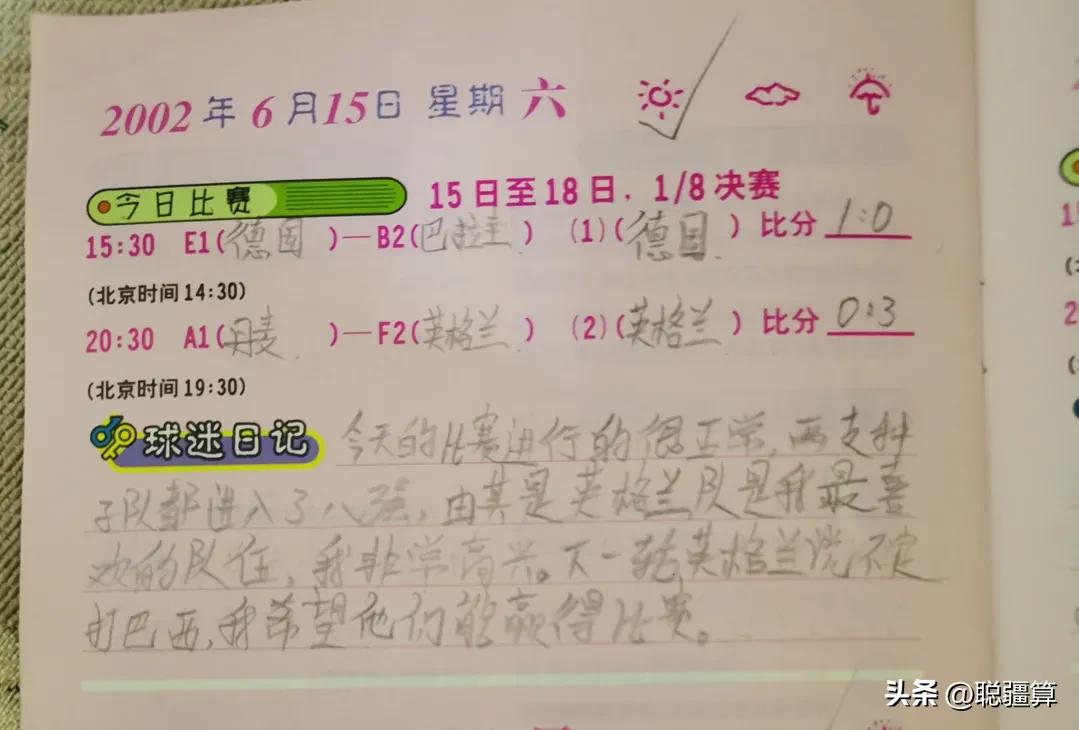 2002年6月15日 星期六
今日比赛 15日至18日，1/8决赛
15:30 E1(德国)—B2(巴拉圭) (1)(德国) 比分 1:0
(北京时间14:30)
20:30 A1(丹麦)—F2(英格兰) (2)(英格兰) 比分 0:3
(北京时间19:30)
球迷日记 今天的比赛进行的很正常，两支种
子队都进入了八强，由其是英格兰队是我最喜
欢的队伍，我非常高兴。下一轮英格兰说不定
打巴西，我希望他们能赢得比赛。
头条 @聪疆算